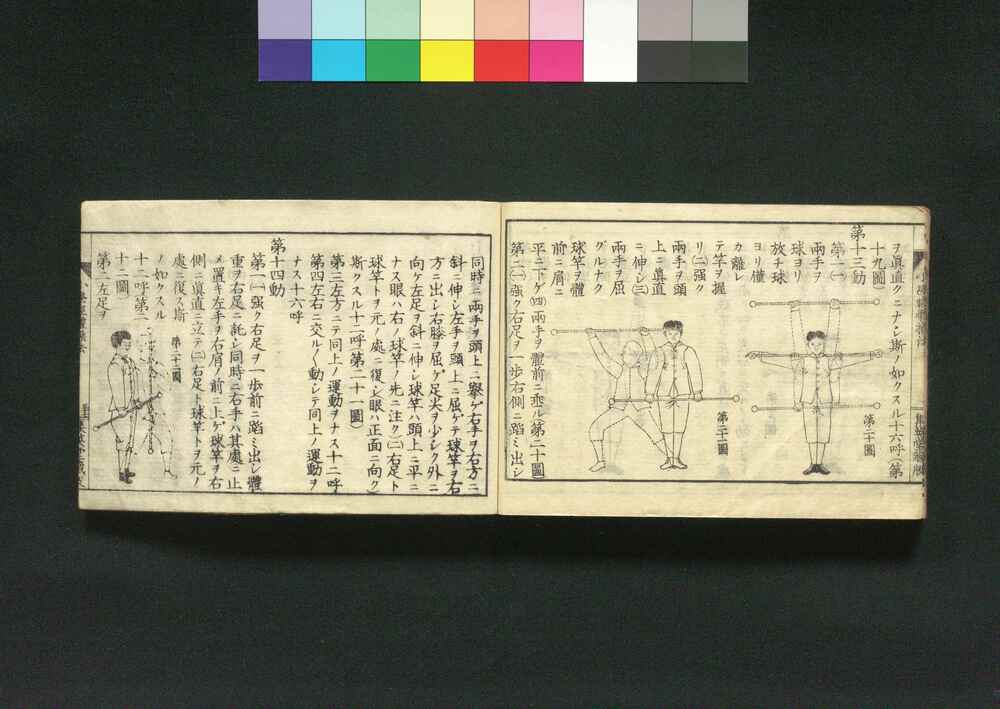 ヲ眞直クニナシ斯ノ如クスル十六呼(第
十九圖)
第十三動
第一(一)
兩手ヲ
球ヨリ
放チ球
ヨリ僅
カ離レ
テ竿ヲ握
リ(二)强ク
兩手ヲ頭
上ニ眞直
ニ伸シ(三)
兩手ヲ屈
グルナク
球竿ヲ體
前ニ肩ニ
平ニ下ゲ(四)兩手ヲ體前ニ垂ル(第二十圖)
第二(一)强ク右足ヲ一歩右側ニ踏ミ出シ
第二十圖
第二十一圖
同時ニ兩手ヲ頭上ニ擧ゲ右手ヲ右方ニ
斜ニ伸シ左手ヲ頭上ニ屈ゲテ球竿ヲ右
方ニ出シ右膝ヲ屈ゲ足尖ヲ少シク外ニ
向ケ左足ヲ斜ニ伸シ球竿ハ頭上ニ平ニ
ナス眼ハ右ノ球竿ノ先ニ注ク(二)右足ト
球竿トヲ元ノ處ニ復シ眼ハ正面ニ向ク
斯クスル十二呼(第二十一圖)
第三左方ニテ同上ノ運動ヲナス十二呼
第四左右ニ交ル〱動シテ同上ノ運動ヲ
ナス十六呼
第十四動
第一(一)强ク右足ヲ一歩前ニ踏ミ出シ體
重ヲ右足ニ託シ同時ニ右手ハ其處ニ止
メ置キ左手ヲ右肩ノ前ニ上ゲ球竿ヲ右
側ニ眞直ニ立テ(二)右足ト球竿トヲ元ノ
處ニ復ス斯
ノ如クスル
十二呼(第二
十二圖)
第二左足ヲ
第二十二圖